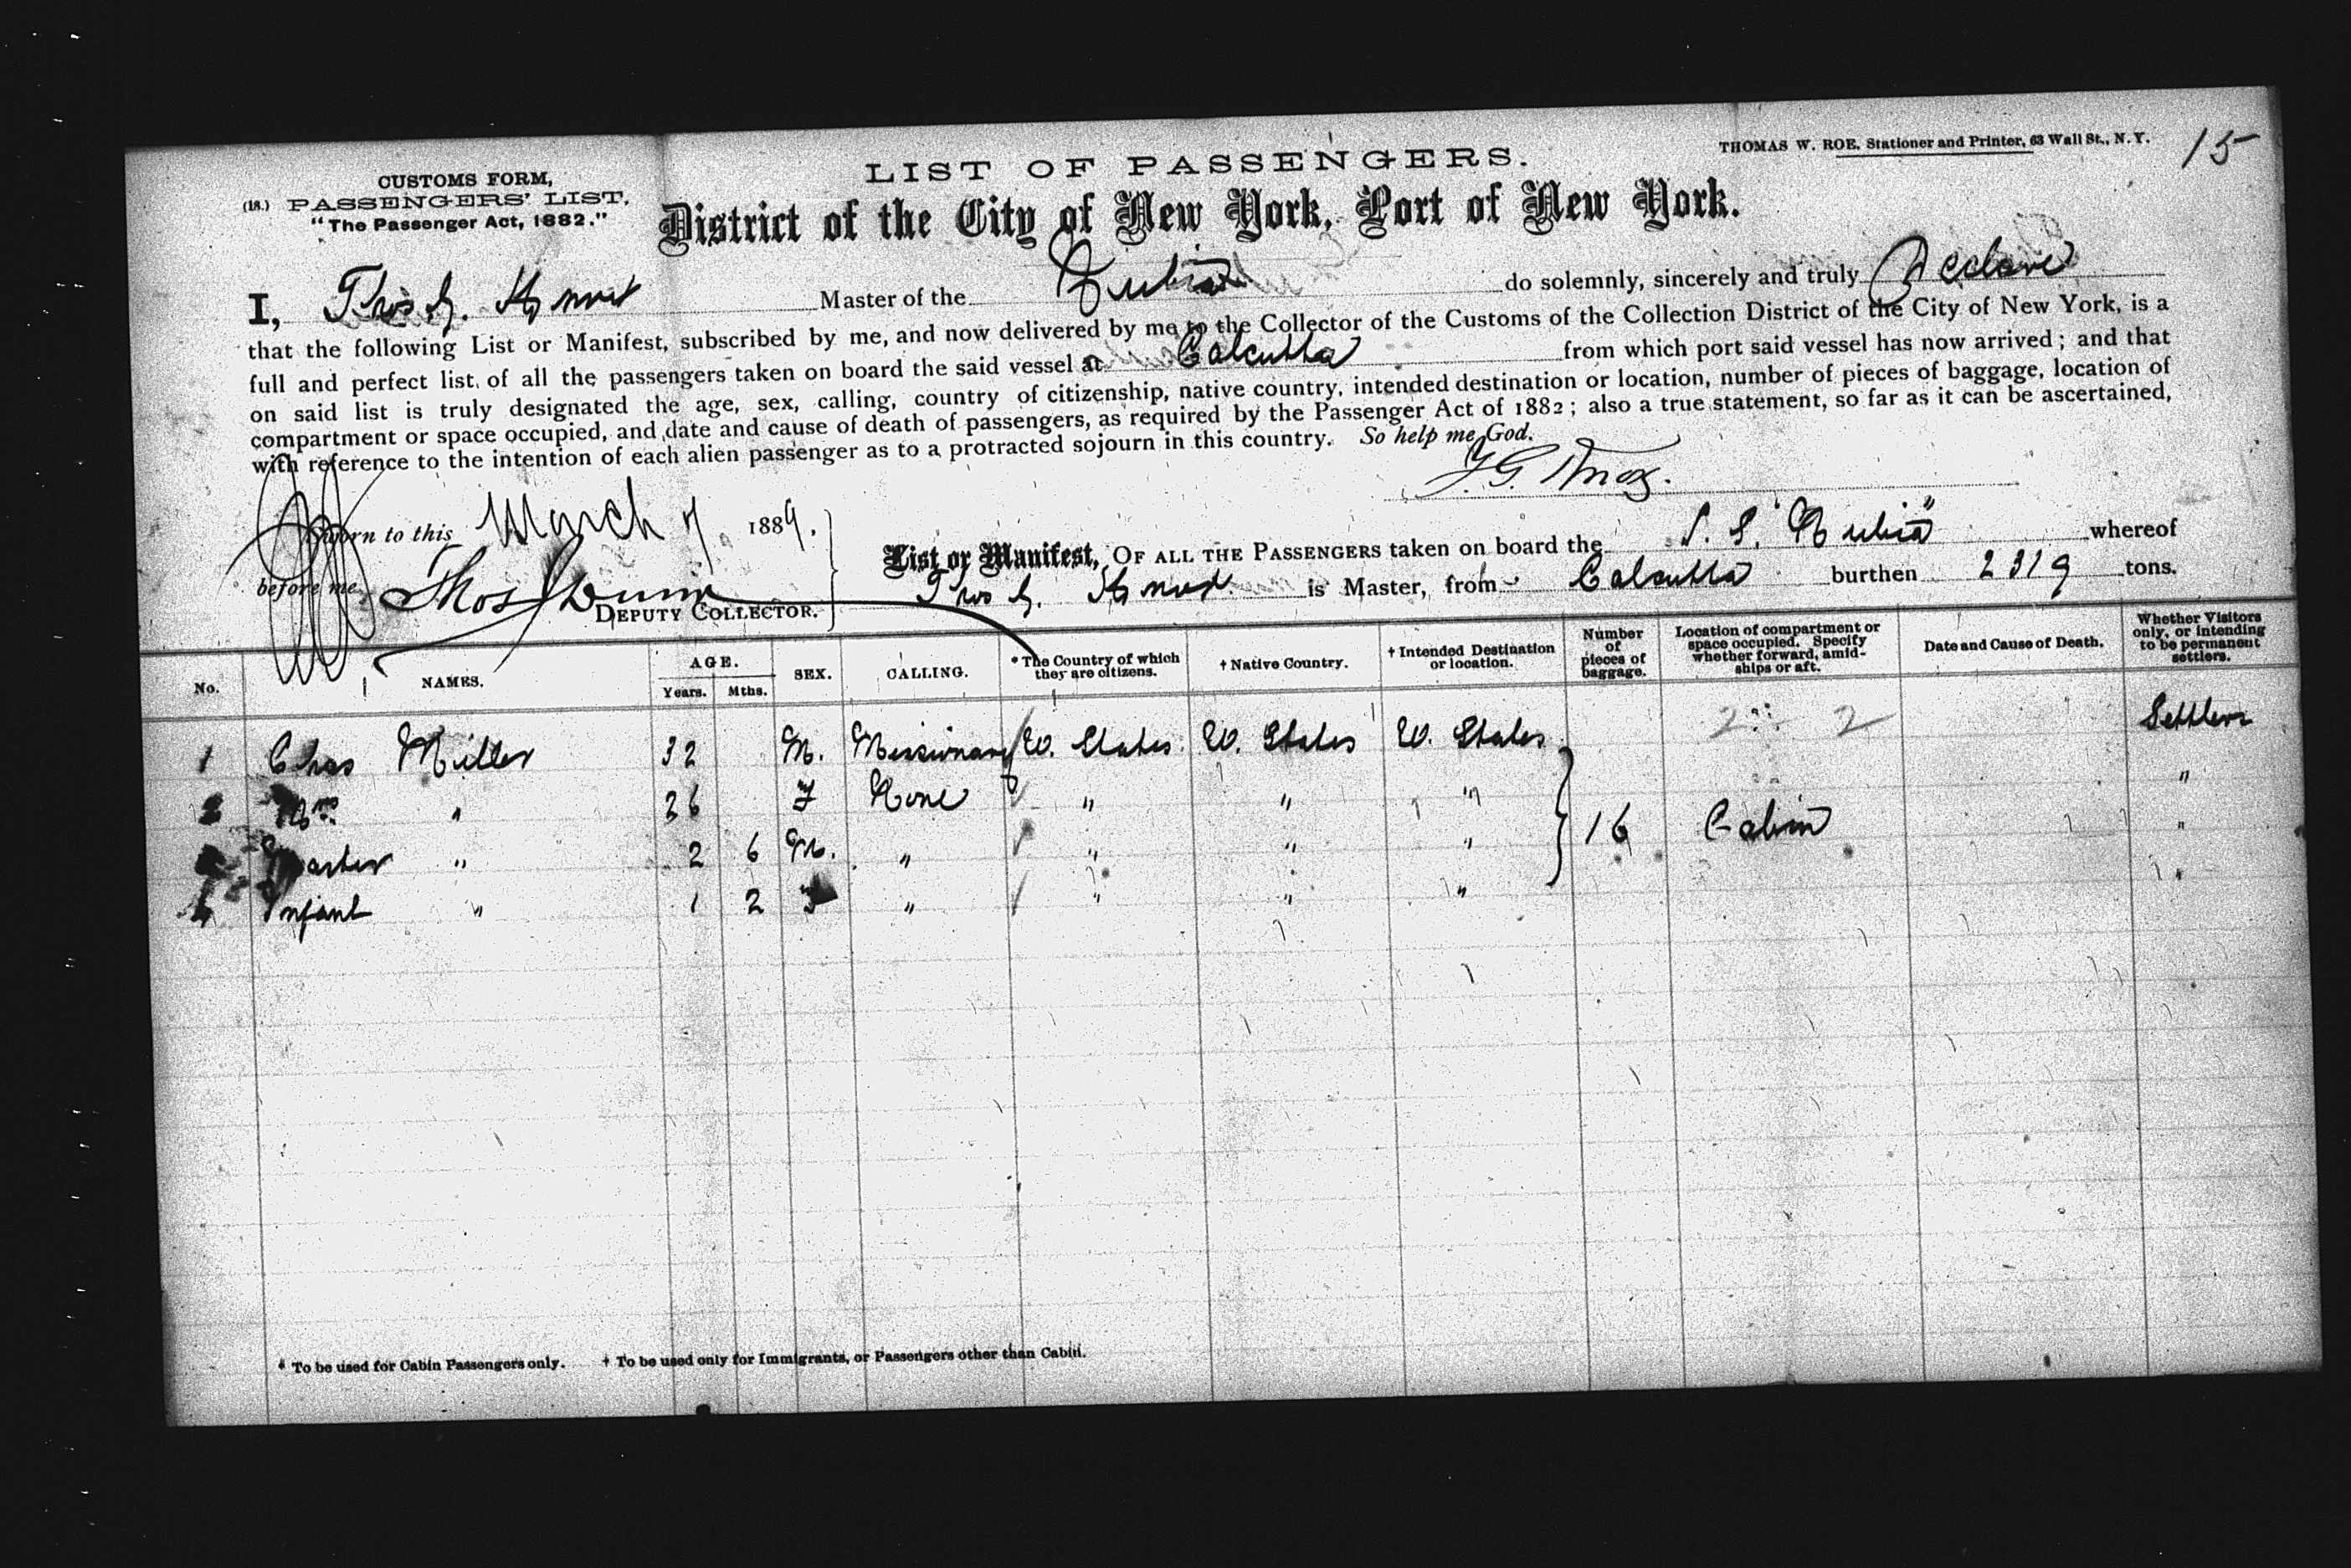 15
THOMAS W. ROE, Stationer and Printer, 63 Wall St., N. Y.
CUSTOMS FORM,
(18.) PASSENGERS' LIST,
"The Passenger Act, 1882."
LIST OF PASSENGERS.
District of the City of New York, Port of New York.
I, Thos G. Knox Master of the Nubia do solemnly, sincerely and truly Declare
that the following List or Manifest, subscribed by me, and now delivered by me to the Collector of the Customs of the Collection District of the City of New York, is a
full and perfect list of all the passengers taken on board the said vessel at Calcutta from which port said vessel has now arrived; and that
on said list is truly designated the age, sex, calling, country of citizenship, native country, intended destination or location, number of pieces of baggage, location of
compartment or space occupied, and date and cause of death of passengers, as required by the Passenger Act of 1882; also a true statement, so far as it can be ascertained,
with reference to the intention of each alien passenger as to a protracted sojourn in this country. So help me God.
T. G. Knox.
Sworn to this March 7 1889.
before me Thos Dunn
DEPUTY COLLECTOR.
List or Manifest, OF ALL THE PASSENGERS taken on board the S. S. "Nubia" whereof
Thos G. Knox is Master, from Calcutta burthen 2319 tons.
No. NAMES. AGE. Years. Mths. SEX. CALLING. * The Country of which they are citizens. † Native Country. † Intended Destination or location. Number of pieces of baggage. Location of compartment or space occupied. Specify whether forward, amidships or aft. Date and Cause of Death. Whether Visitors only, or intending to be permanent settlers.
2 2
1 Chas Miller 32 M. Missionary U. States U. States U. States Settlers
2 Mrs " 26 F None " " " "
3 Master " 2 6 M. " " " " 16 Cabin "
4 Infant " 1 2 F " " " " "
* To be used for Cabin Passengers only. † To be used only for Immigrants, or Passengers other than Cabin.